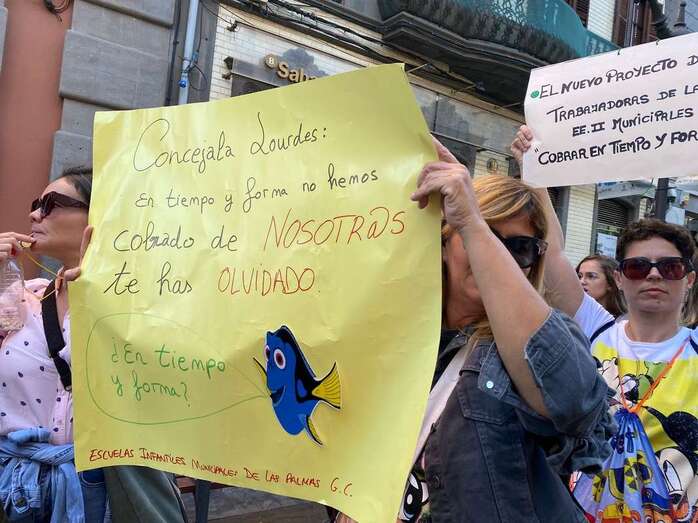 Sab
Concejala Lourdes:
En tiempo y forma no hemos
cobrado de NOSOTR@S
te has OLVIDADO.
¿En tiempo
y forma?
Escuelas Infantiles Municipales De Las Palmas G.C.
El nuevo proyecto d
Trabajadoras de la
EE.II Municipales
"Cobrar en tiempo y for